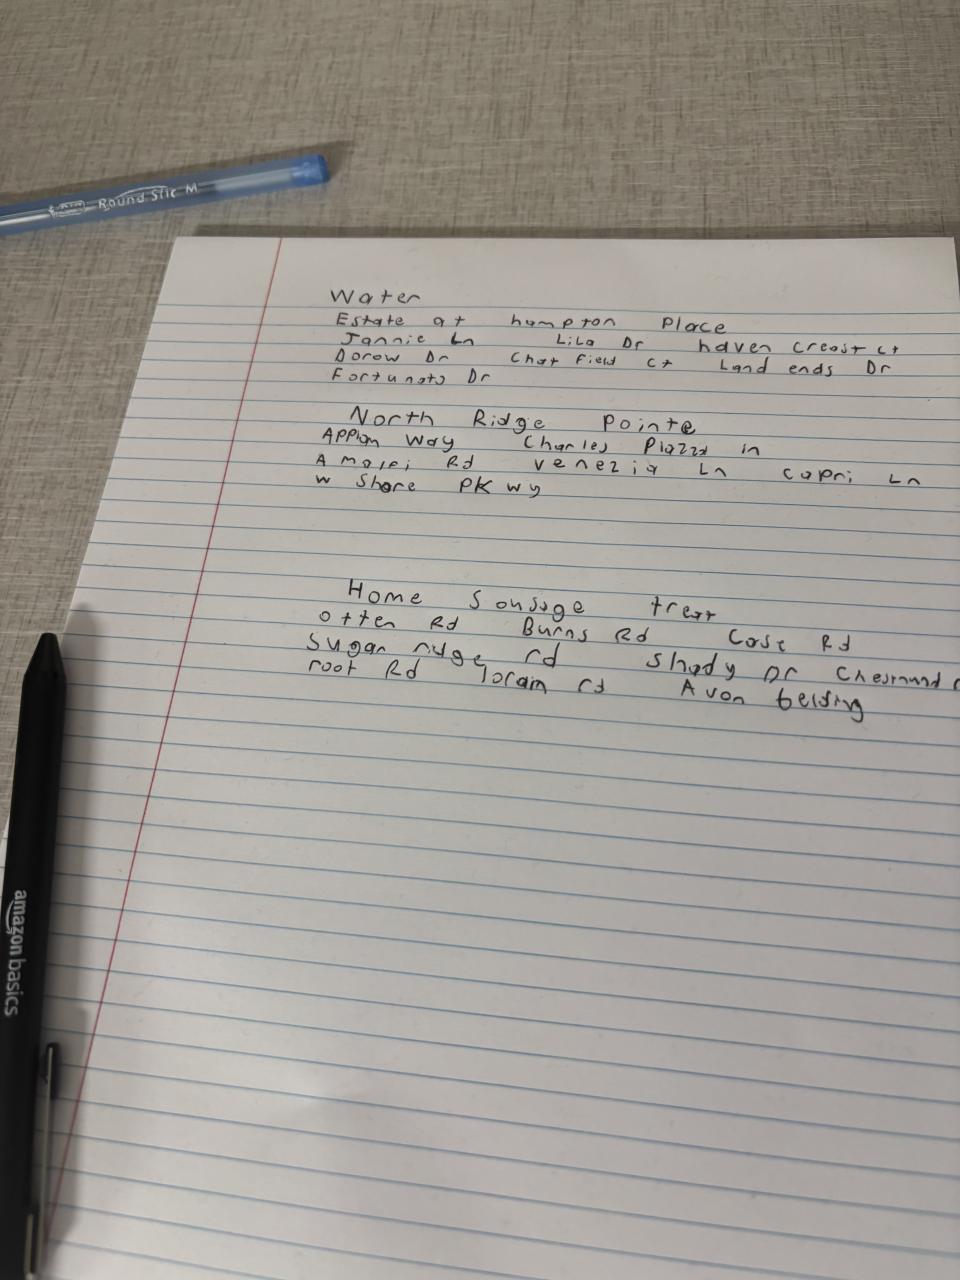 BIC Round Stic M
Water
Estate at hampton Place
Jannie Ln Lila Dr haven creast ct
Dorow Dr Chat field ct Land ends Dr
Fortunato Dr
North Ridge Pointe
Appian Way Charles Plazza ln
Amalfi Rd venezia Ln capri Ln
W Shore PKwy
Home Sousage treat
Otten Rd Burns Rd Case Rd
Sugar ridge rd Shady Dr
root Rd rd Avon belding
amazon basics